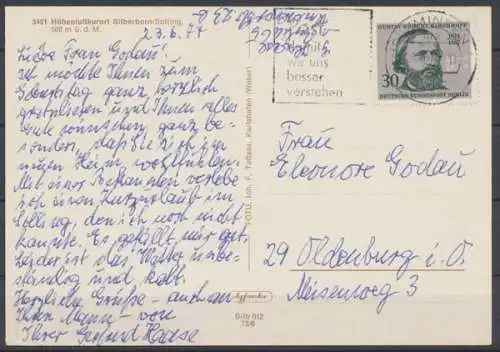 3451 Höhenluftkurort Silberborn/Solling,
500 m ü. d. M.
23.6.77
Liebe Frau Godau!
Ich möchte Ihnen zum
Geburtstag ganz herzlich
gratulieren und Ihnen alles
Gute wünschen, ganz be-
sonders, daß Sie sich im
neuen Heim wohlfühlen.
Mit einer Bekannten verlebe
ich einen Kurzurlaub im
Solling, den ich noch nicht
kannte. Es gefällt mir gut,
leider ist das Wetter unbe-
ständig und kalt.
Herzliche Grüße – auch an
Ihren Mann – von
Ihrer Gertrud Haase
FOTO, Inh. F. Tattass, Karlshafen (Weser)
Silb 912
damit
wir uns
besser
verstehen
GUSTAV ROBERT KIRCHHOFF
30
DEUTSCHE BUNDESPOST BERLIN
Frau
Eleonore Godau
29 Oldenburg i. O.
Meisenweg 3